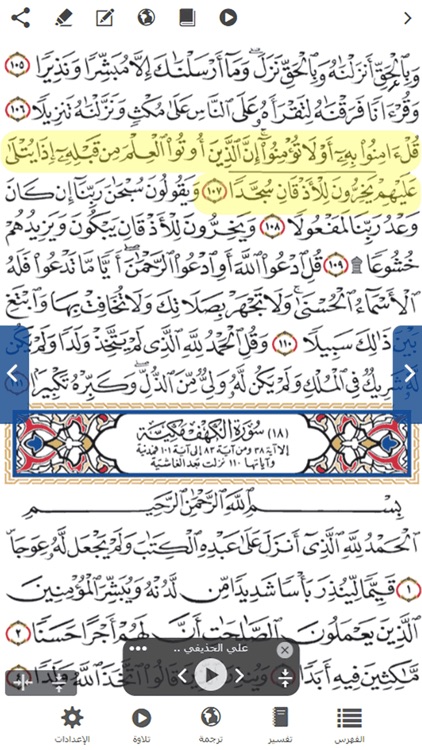 وَبِٱلْحَقِّ أَنزَلْنَٰهُ وَبِٱلْحَقِّ نَزَلَ ۗ وَمَآ أَرْسَلْنَٰكَ إِلَّا مُبَشِّرًا وَنَذِيرًا ١٠٥
وَقُرْءَانًا فَرَقْنَٰهُ لِتَقْرَأَهُۥ عَلَى ٱلنَّاسِ عَلَىٰ مُكْثٍ وَنَزَّلْنَٰهُ تَنزِيلًا ١٠٦
قُلْ ءَامِنُوا۟ بِهِۦٓ أَوْ لَا تُؤْمِنُوٓا۟ ۚ إِنَّ ٱلَّذِينَ أُوتُوا۟ ٱلْعِلْمَ مِن قَبْلِهِۦٓ إِذَا يُتْلَىٰ
عَلَيْهِمْ يَخِرُّونَ لِلْأَذْقَانِ سُجَّدًا ١٠٧ وَيَقُولُونَ سُبْحَٰنَ رَبِّنَآ إِن كَانَ
وَعْدُ رَبِّنَا لَمَفْعُولًا ١٠٨ وَيَخِرُّونَ لِلْأَذْقَانِ يَبْكُونَ وَيَزِيدُهُمْ
خُشُوعًا ۩ ١٠٩ قُلِ ٱدْعُوا۟ ٱللَّهَ أَوِ ٱدْعُوا۟ ٱلرَّحْمَٰنَ ۖ أَيًّا مَّا تَدْعُوا۟ فَلَهُ
ٱلْأَسْمَآءُ ٱلْحُسْنَىٰ ۚ وَلَا تَجْهَرْ بِصَلَاتِكَ وَلَا تُخَافِتْ بِهَا وَٱبْتَغِ
بَيْنَ ذَٰلِكَ سَبِيلًا ١١٠ وَقُلِ ٱلْحَمْدُ لِلَّهِ ٱلَّذِى لَمْ يَتَّخِذْ وَلَدًا وَلَمْ يَكُن
لَّهُۥ شَرِيكٌ فِى ٱلْمُلْكِ وَلَمْ يَكُن لَّهُۥ وَلِىٌّ مِّنَ ٱلذُّلِّ ۖ وَكَبِّرْهُ تَكْبِيرًۢا
(١٨) سُورَةُ الْكَهْفِ مَكِّيَّة
إلا آية ٣٨ ومن آية ٨٣ إلى آية ١٠١ فمدنية
وآياتها ١١٠ نزلت بعد الغاشية
بِسْمِ ٱللَّهِ ٱلرَّحْمَٰنِ ٱلرَّحِيمِ
ٱلْحَمْدُ لِلَّهِ ٱلَّذِىٓ أَنزَلَ عَلَىٰ عَبْدِهِ ٱلْكِتَٰبَ وَلَمْ يَجْعَل لَّهُۥ عِوَجَا
١ قَيِّمًا لِّيُنذِرَ بَأْسًا شَدِيدًا مِّن لَّدُنْهُ وَيُبَشِّرَ ٱلْمُؤْمِنِينَ
ٱلَّذِينَ يَعْمَلُونَ ٱلصَّٰلِحَٰتِ أَنَّ لَهُمْ أَجْرًا حَسَنًا ٢
مَّٰكِثِينَ فِيهِ أَبَدًا قَالُوا۟ ٱتَّخَذَ ٱللَّهُ وَلَدًا
علي الحذيفي ..
الفهرس
تفسير
ترجمة
تلاوة
الإعدادات